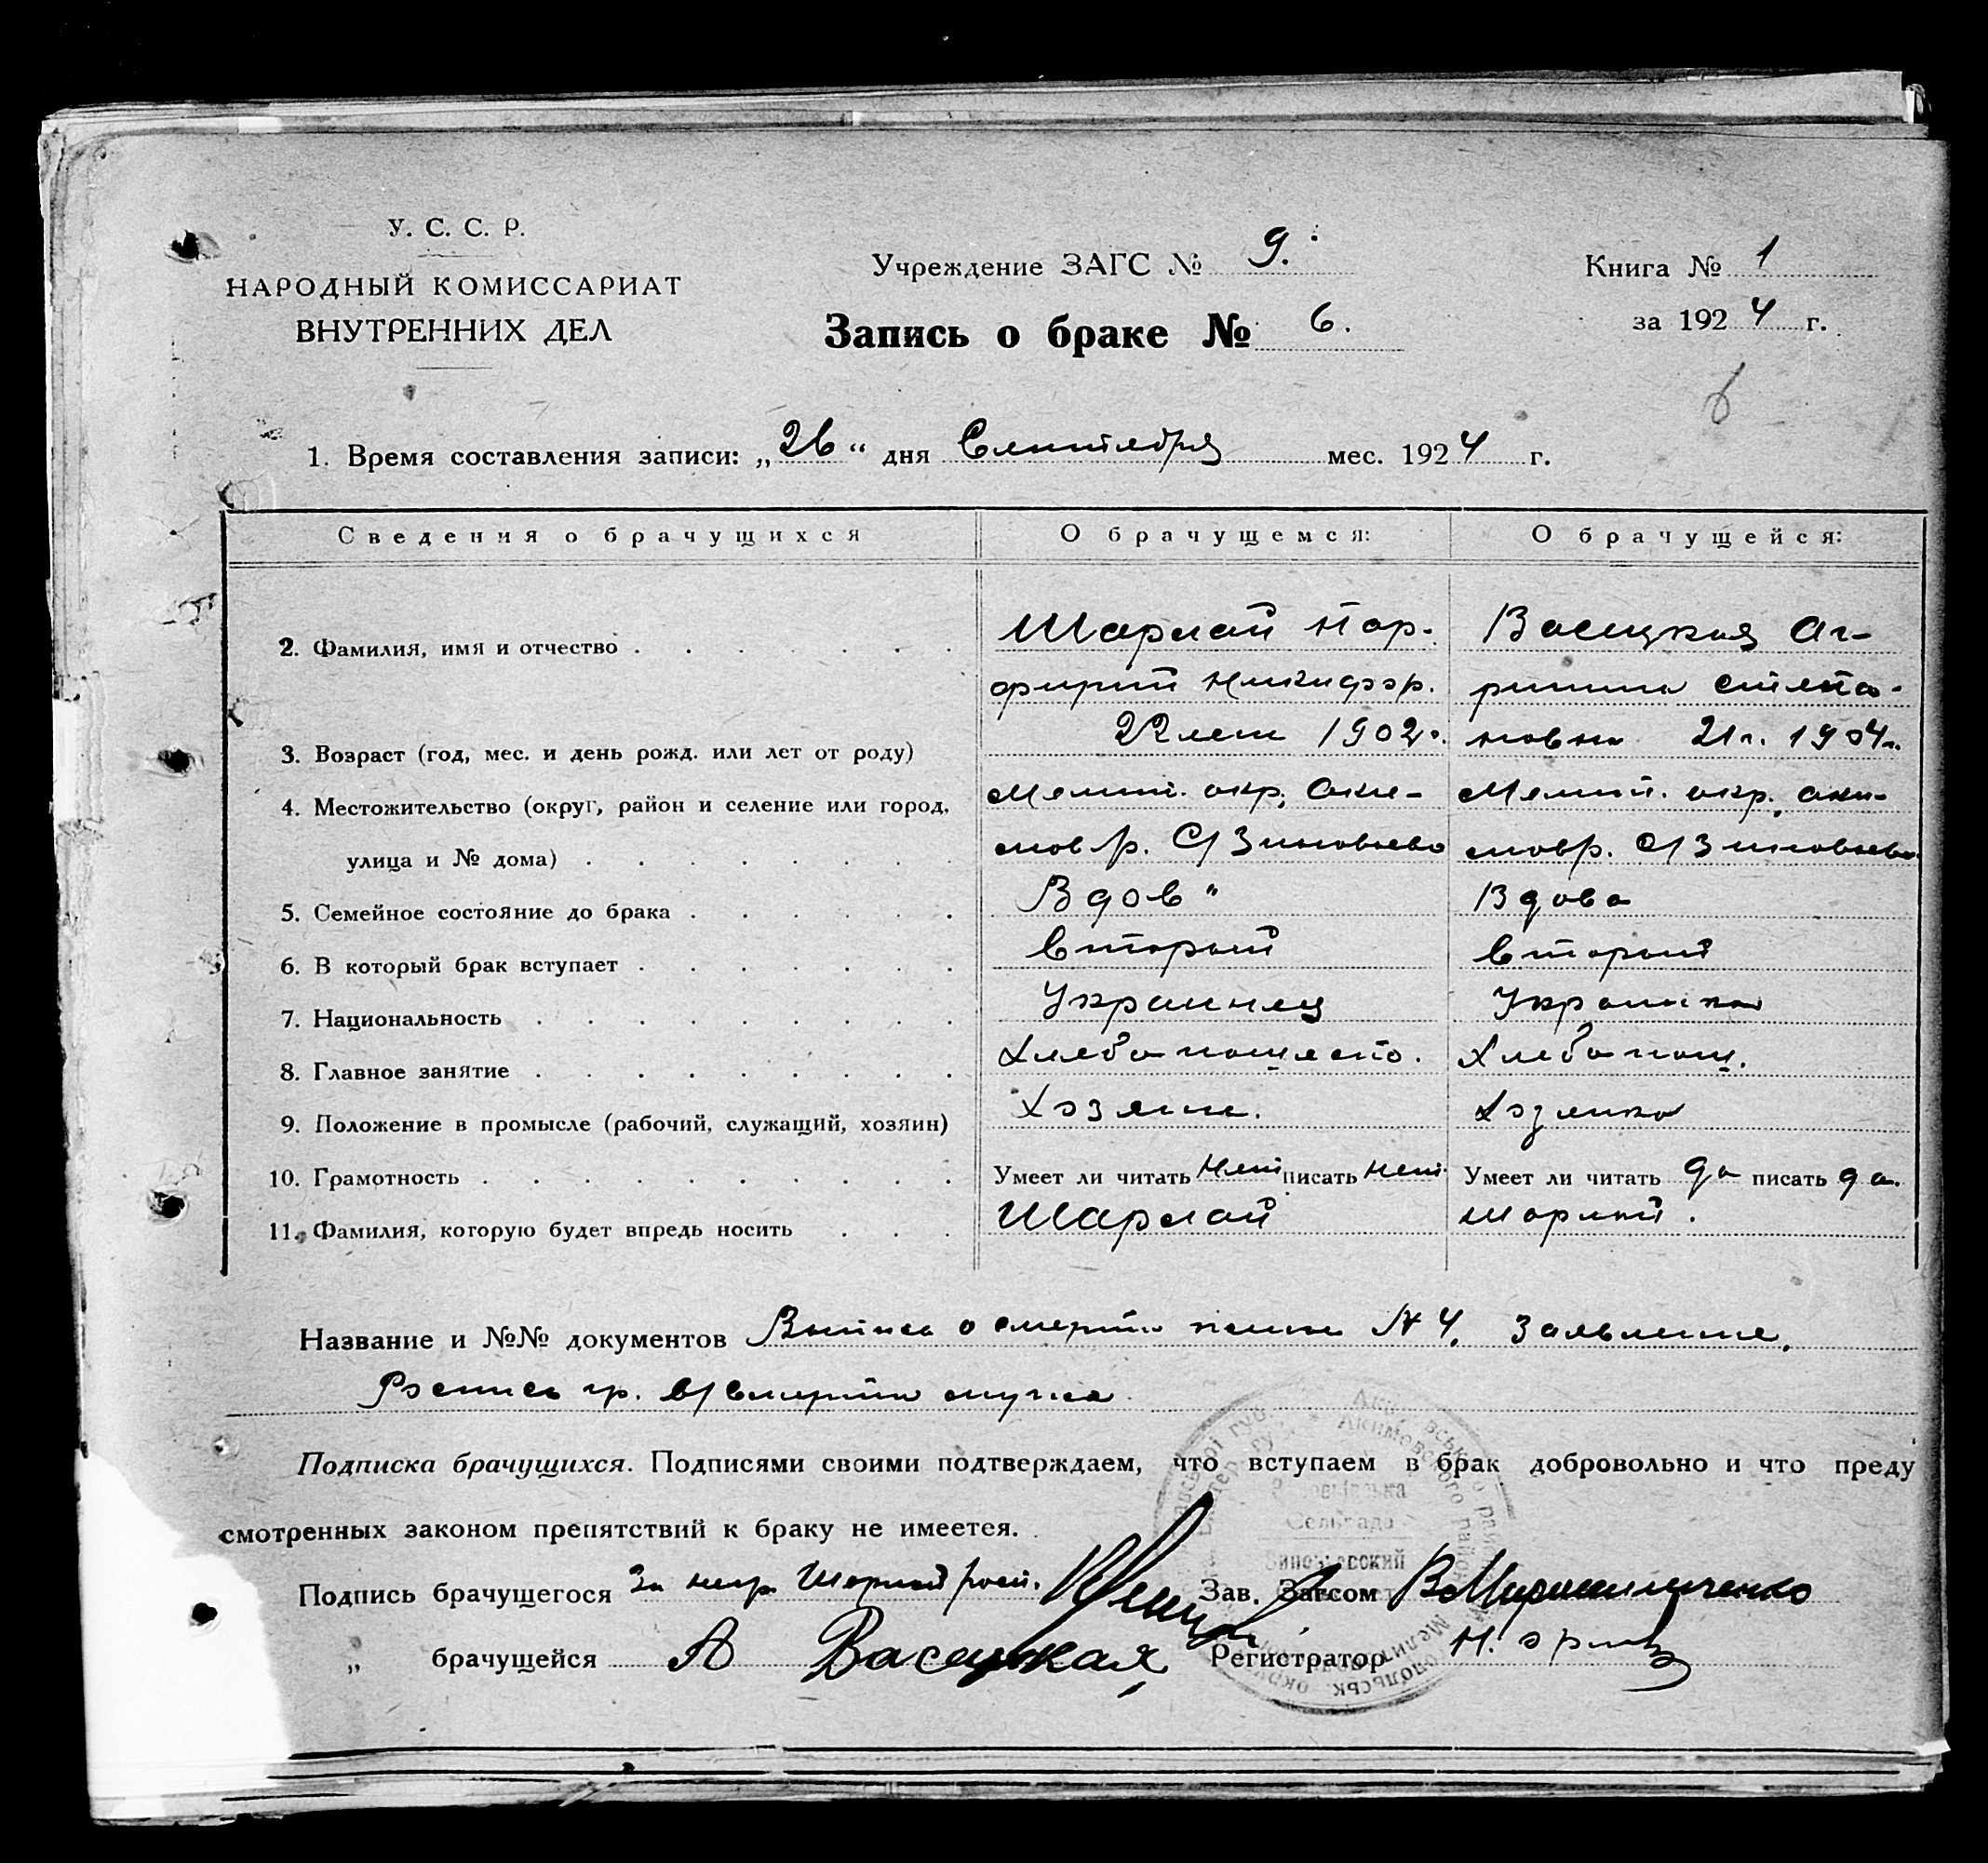 У. С. С. Р.
НАРОДНЫЙ КОМИССАРИАТ
ВНУТРЕННИХ ДЕЛ
Учреждение ЗАГС № 9.
Запись о браке № 6.
Книга № 1
за 1924 г.
6
1. Время составления записи: „26“ дня Сентября мес. 1924 г.
Сведения о брачущихся О брачущемся: О брачущейся:
2. Фамилия, имя и отчество Шарлай Пор- Васецкая Аг-
фирий Никифор. рипина Степа-
3. Возраст (год, мес. и день рожд. или лет от роду) 22 лет 1902г. новна 21г. 1904г.
4. Местожительство (округ, район и селение или город, Мелит. окр., Аки- Мелит. окр., Аки-
улица и № дома) мов р. С/Зиновьево мов р. С/Зиновьево
5. Семейное состояние до брака Вдов" Вдова
6. В который брак вступает Вторый Вторый
7. Национальность Украинец Украинка
8. Главное занятие Хлебопашество. Хлебопаш.
9. Положение в промысле (рабочий, служащий, хозяин) Хозяин. Хозяика
10. Грамотность Умеет ли читать Нет писать Нет Умеет ли читать да писать да.
11. Фамилия, которую будет впредь носить Шарлай Шарлай.
Название и №№ документов Выпись о смерти жены N 4. Заявление,
Роспись гр. о смерти мужа
Подписка брачущихся. Подписями своими подтверждаем, что вступаем в брак добровольно и что преду
смотренных законом препятствий к браку не имеется.
Подпись брачущегося За негр. Шарлай Зав. Загсом В Мирошниченко
„ брачущейся А Васецкая Регистратор Н.
Сельрада